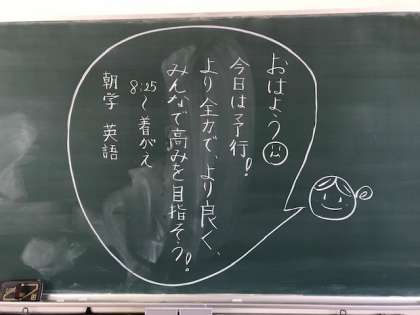 おはよう
今日は予行!
より全力で、より良く、
みんなで高みを目指そう!
8:25〜着がえ
朝学 英語